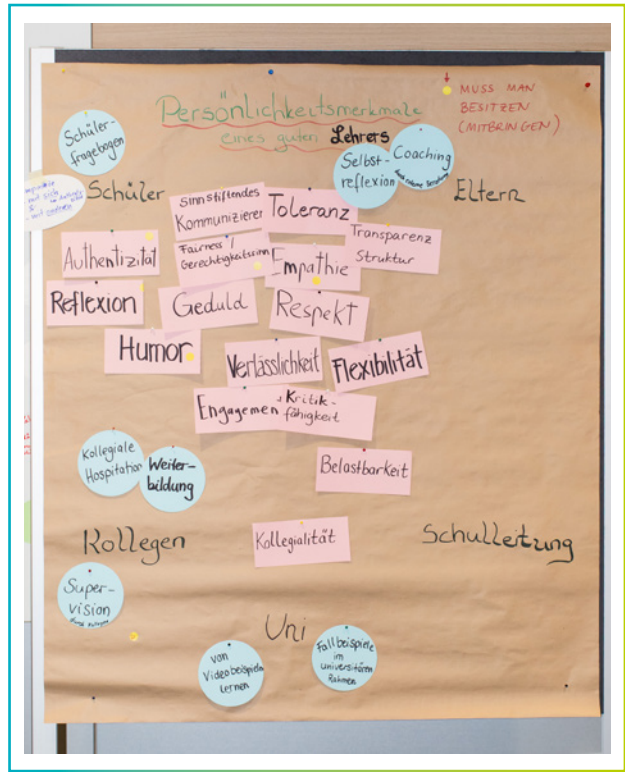 Persönlichkeitsmerkmale
eines guten Lehrers
MUSS MAN
BESITZEN
(MITBRINGEN)
Schüler-
fragebogen
Selbst-
reflexion
Coaching
Schüler
Eltern
mit sich
&
mit anderen
Sinnstiftendes
Kommunizieren
Toleranz
Transparenz
Struktur
Authentizität
Fairness /
Gerechtigkeitssinn
Empathie
Reflexion
Geduld
Respekt
Humor
Verlässlichkeit
Flexibilität
Engagemen
Kritik-
fähigkeit
Kollegiale
Hospitation
Weiter-
bildung
Belastbarkeit
Kollegen
Kollegialität
Schulleitung
Super-
vision
Uni
von
Videobeispielen
lernen
Fallbeispiele
im
universitären
Rahmen